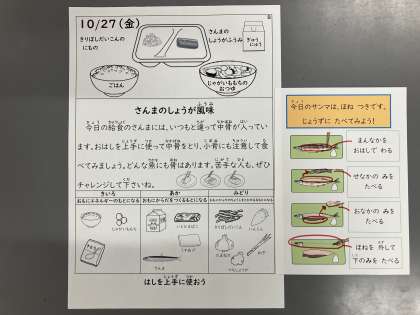 10/27(金)
きりぼしだいこんの
にもの
さんまの
しょうがふうみ
ぎゅう
にゅう
ごはん
じゃがいももちの
おつゆ
さんまのしょうが風味
今日の給食のさんまには、いつもと違って中骨が入ってい
ます。おはしを上手に使って中骨をとり、小骨にも注意して食
べてみましょう。どんな魚にも骨はあります。苦手な人も、ぜひ
チャレンジして下さいね。
きいろ
あか
みどり
おもにエネルギーのもとになる
おもにからだをつくるもとになる
じゃがいももち
さんま
はしを上手に使おう
今日のサンマは、ほね つきです。
じょうずに たべてみよう!
まんなかを
おはしで わる
せなかの みを
たべる
おなかの みを
たべる
ほねを 外して
下のみを たべる